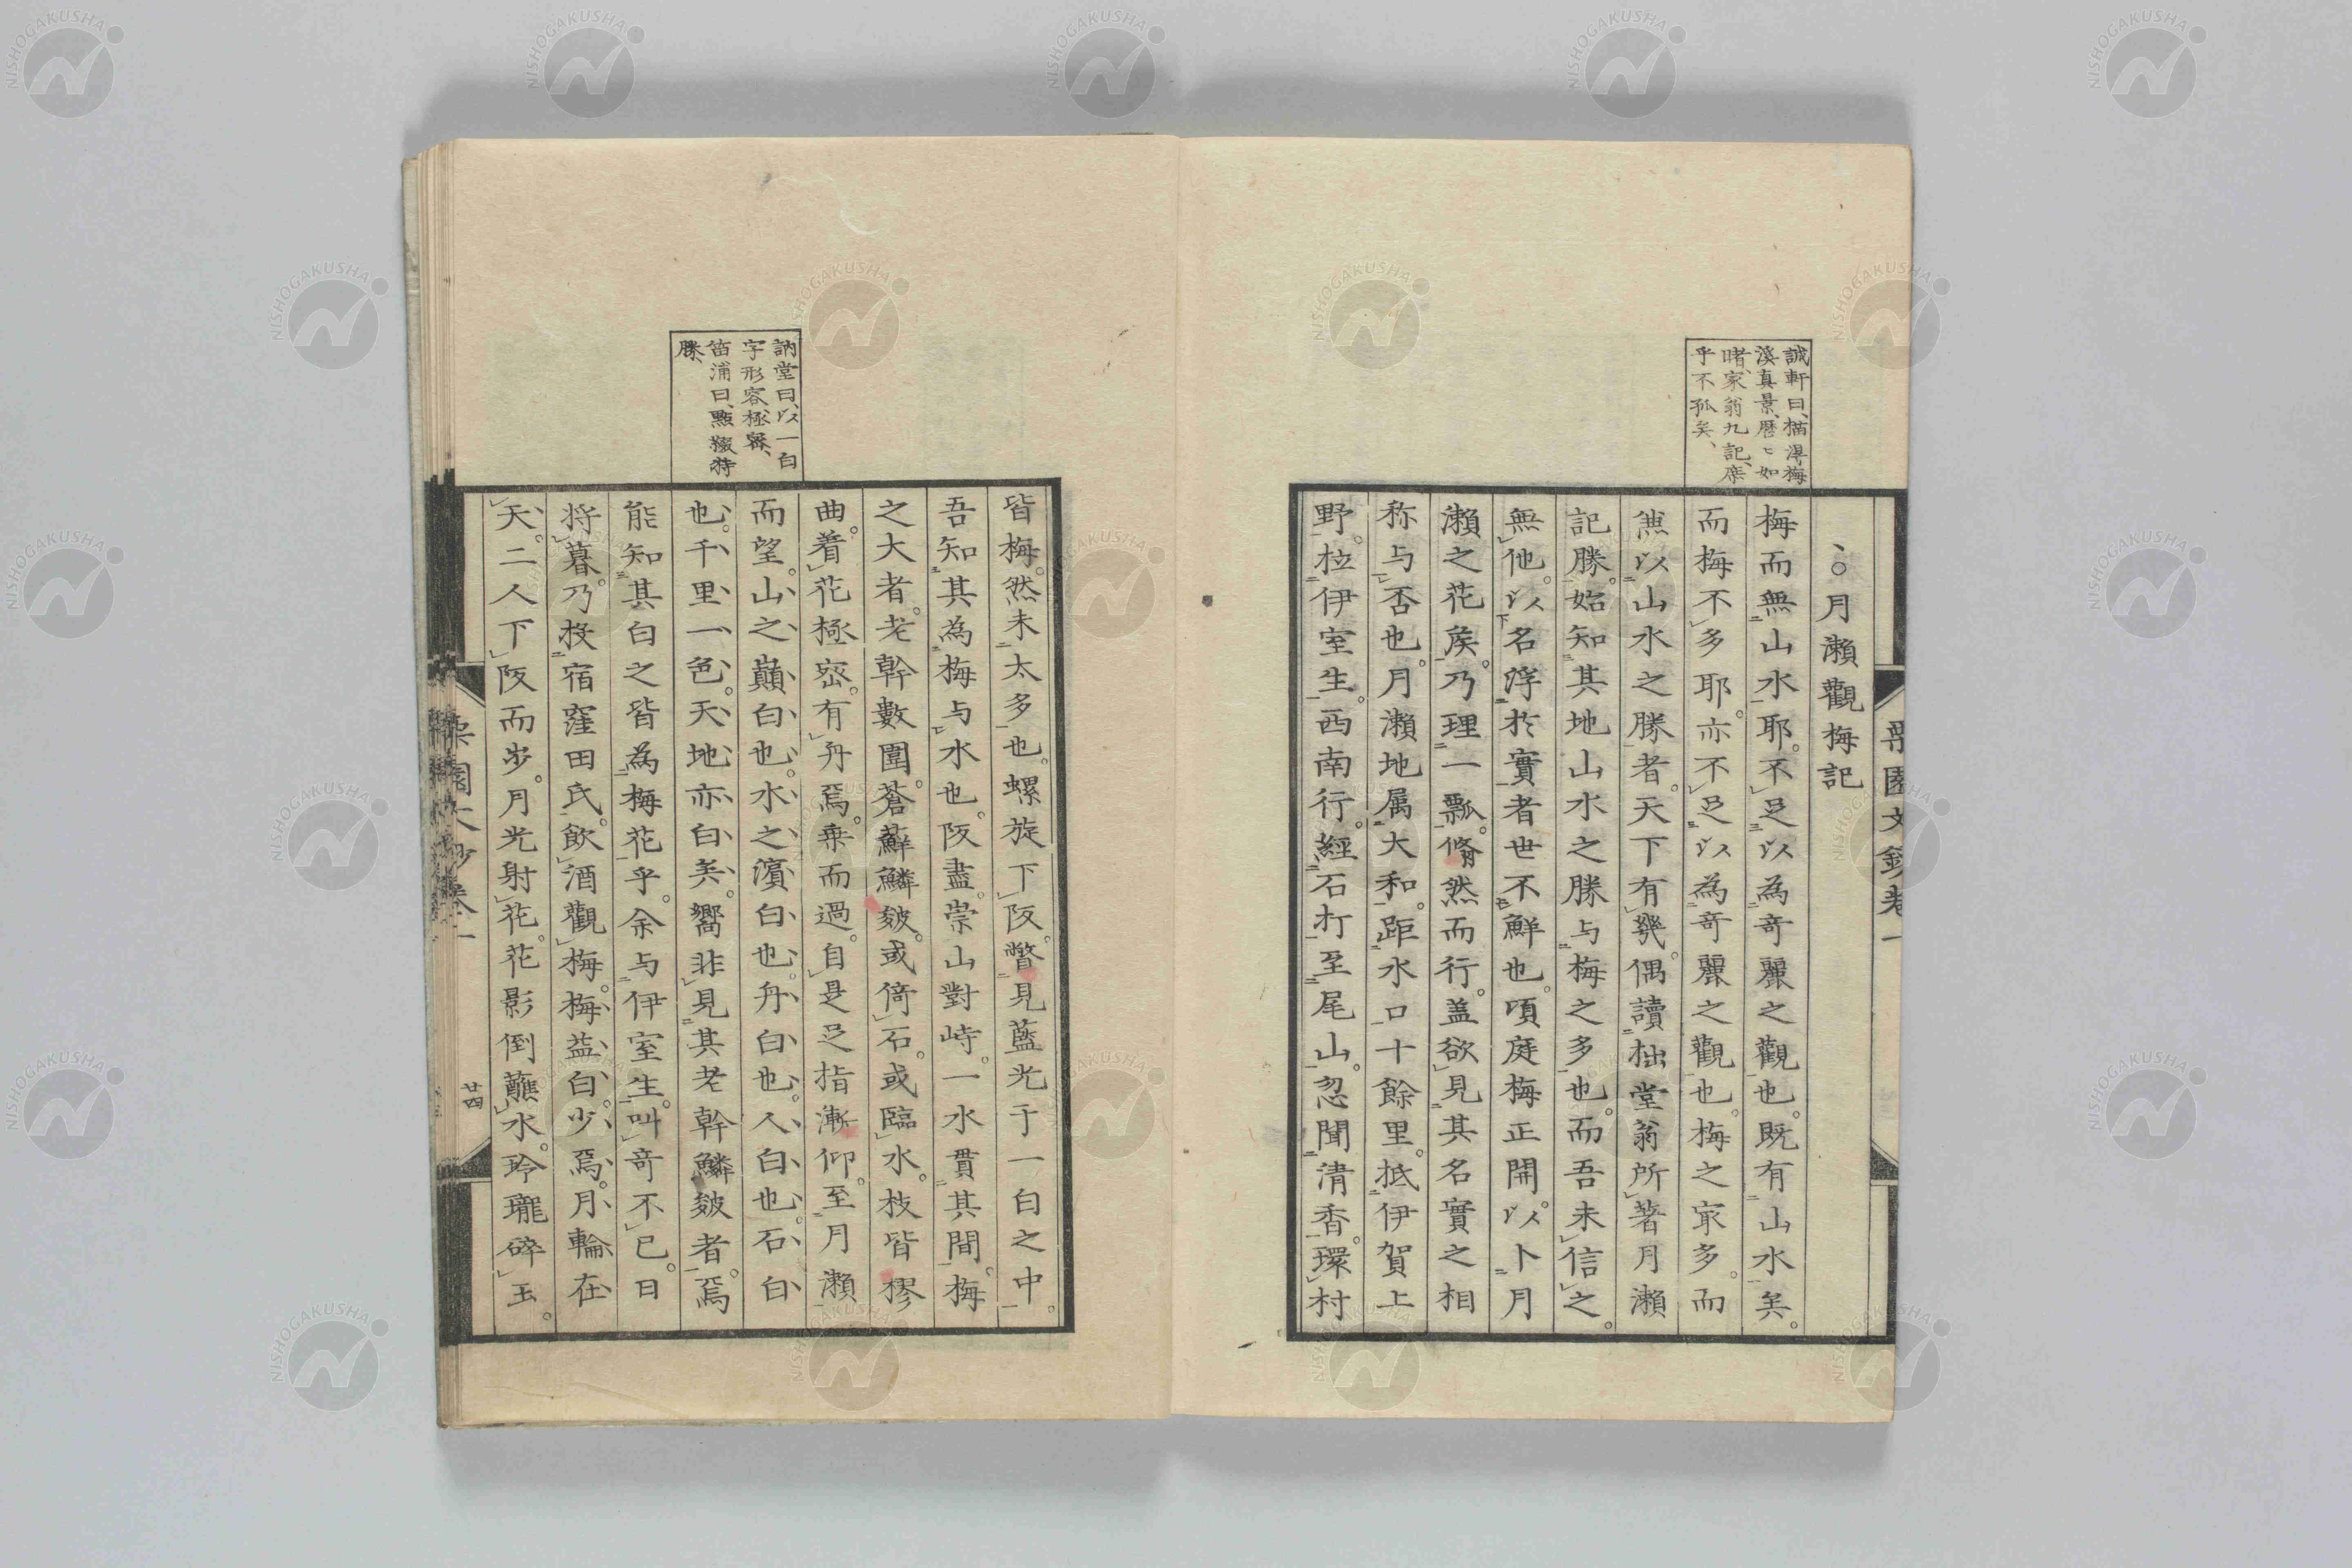 誠軒曰、描得梅
溪真景、歴〻如
睹、家翁九記、庶
乎不孤矣、
、○月瀨觀梅記
梅而無山水耶。不足以為奇麗之觀也。既有山水矣。
而梅不多耶。亦不足以為奇麗之觀也。梅之冣多。而
兼以山水之勝者。天下有幾。偶讀拙堂翁所著月瀨
記勝。始知其地山水之勝与梅之多也。而吾未信之。
無他。以名浮於實者世不鮮也。頃庭梅正開。以卜月
瀨之花矦。乃理一瓢。翛然而行。盖欲見其名實之相
称与否也。月瀨地属大和。距水口十餘里。抵伊賀上
野。拉伊室生。西南行。經石打至尾山。忽聞清香。環村
訥堂曰、以一白
字形容、極家、
笛浦曰、點綴特
勝、
皆梅。然未太多也。螺旋下阪。瞥見藍光于一白之中。
吾知其為梅与水也。阪盡。崇山對峙。一水貫其間。梅
之大者。老幹數圍。蒼蘚鱗皴。或倚石。或臨水。枝皆樛
曲。着花極密。有舟焉。乗而過。自是足指漸仰。至月瀨
而望。山之巔白也。水之濱白也。舟白也。人白也。石白
也。千里一色。天地亦白矣。嚮非見其老幹鱗皴者。焉
能知其白之皆為梅花乎。余与伊室生。叫奇不已。日
将暮。乃投宿窪田氏。飲酒觀梅。梅益白。少焉。月輪在
天。二人下阪而步。月光射花。花影倒蘸水。玲瓏碎玉。
廿四